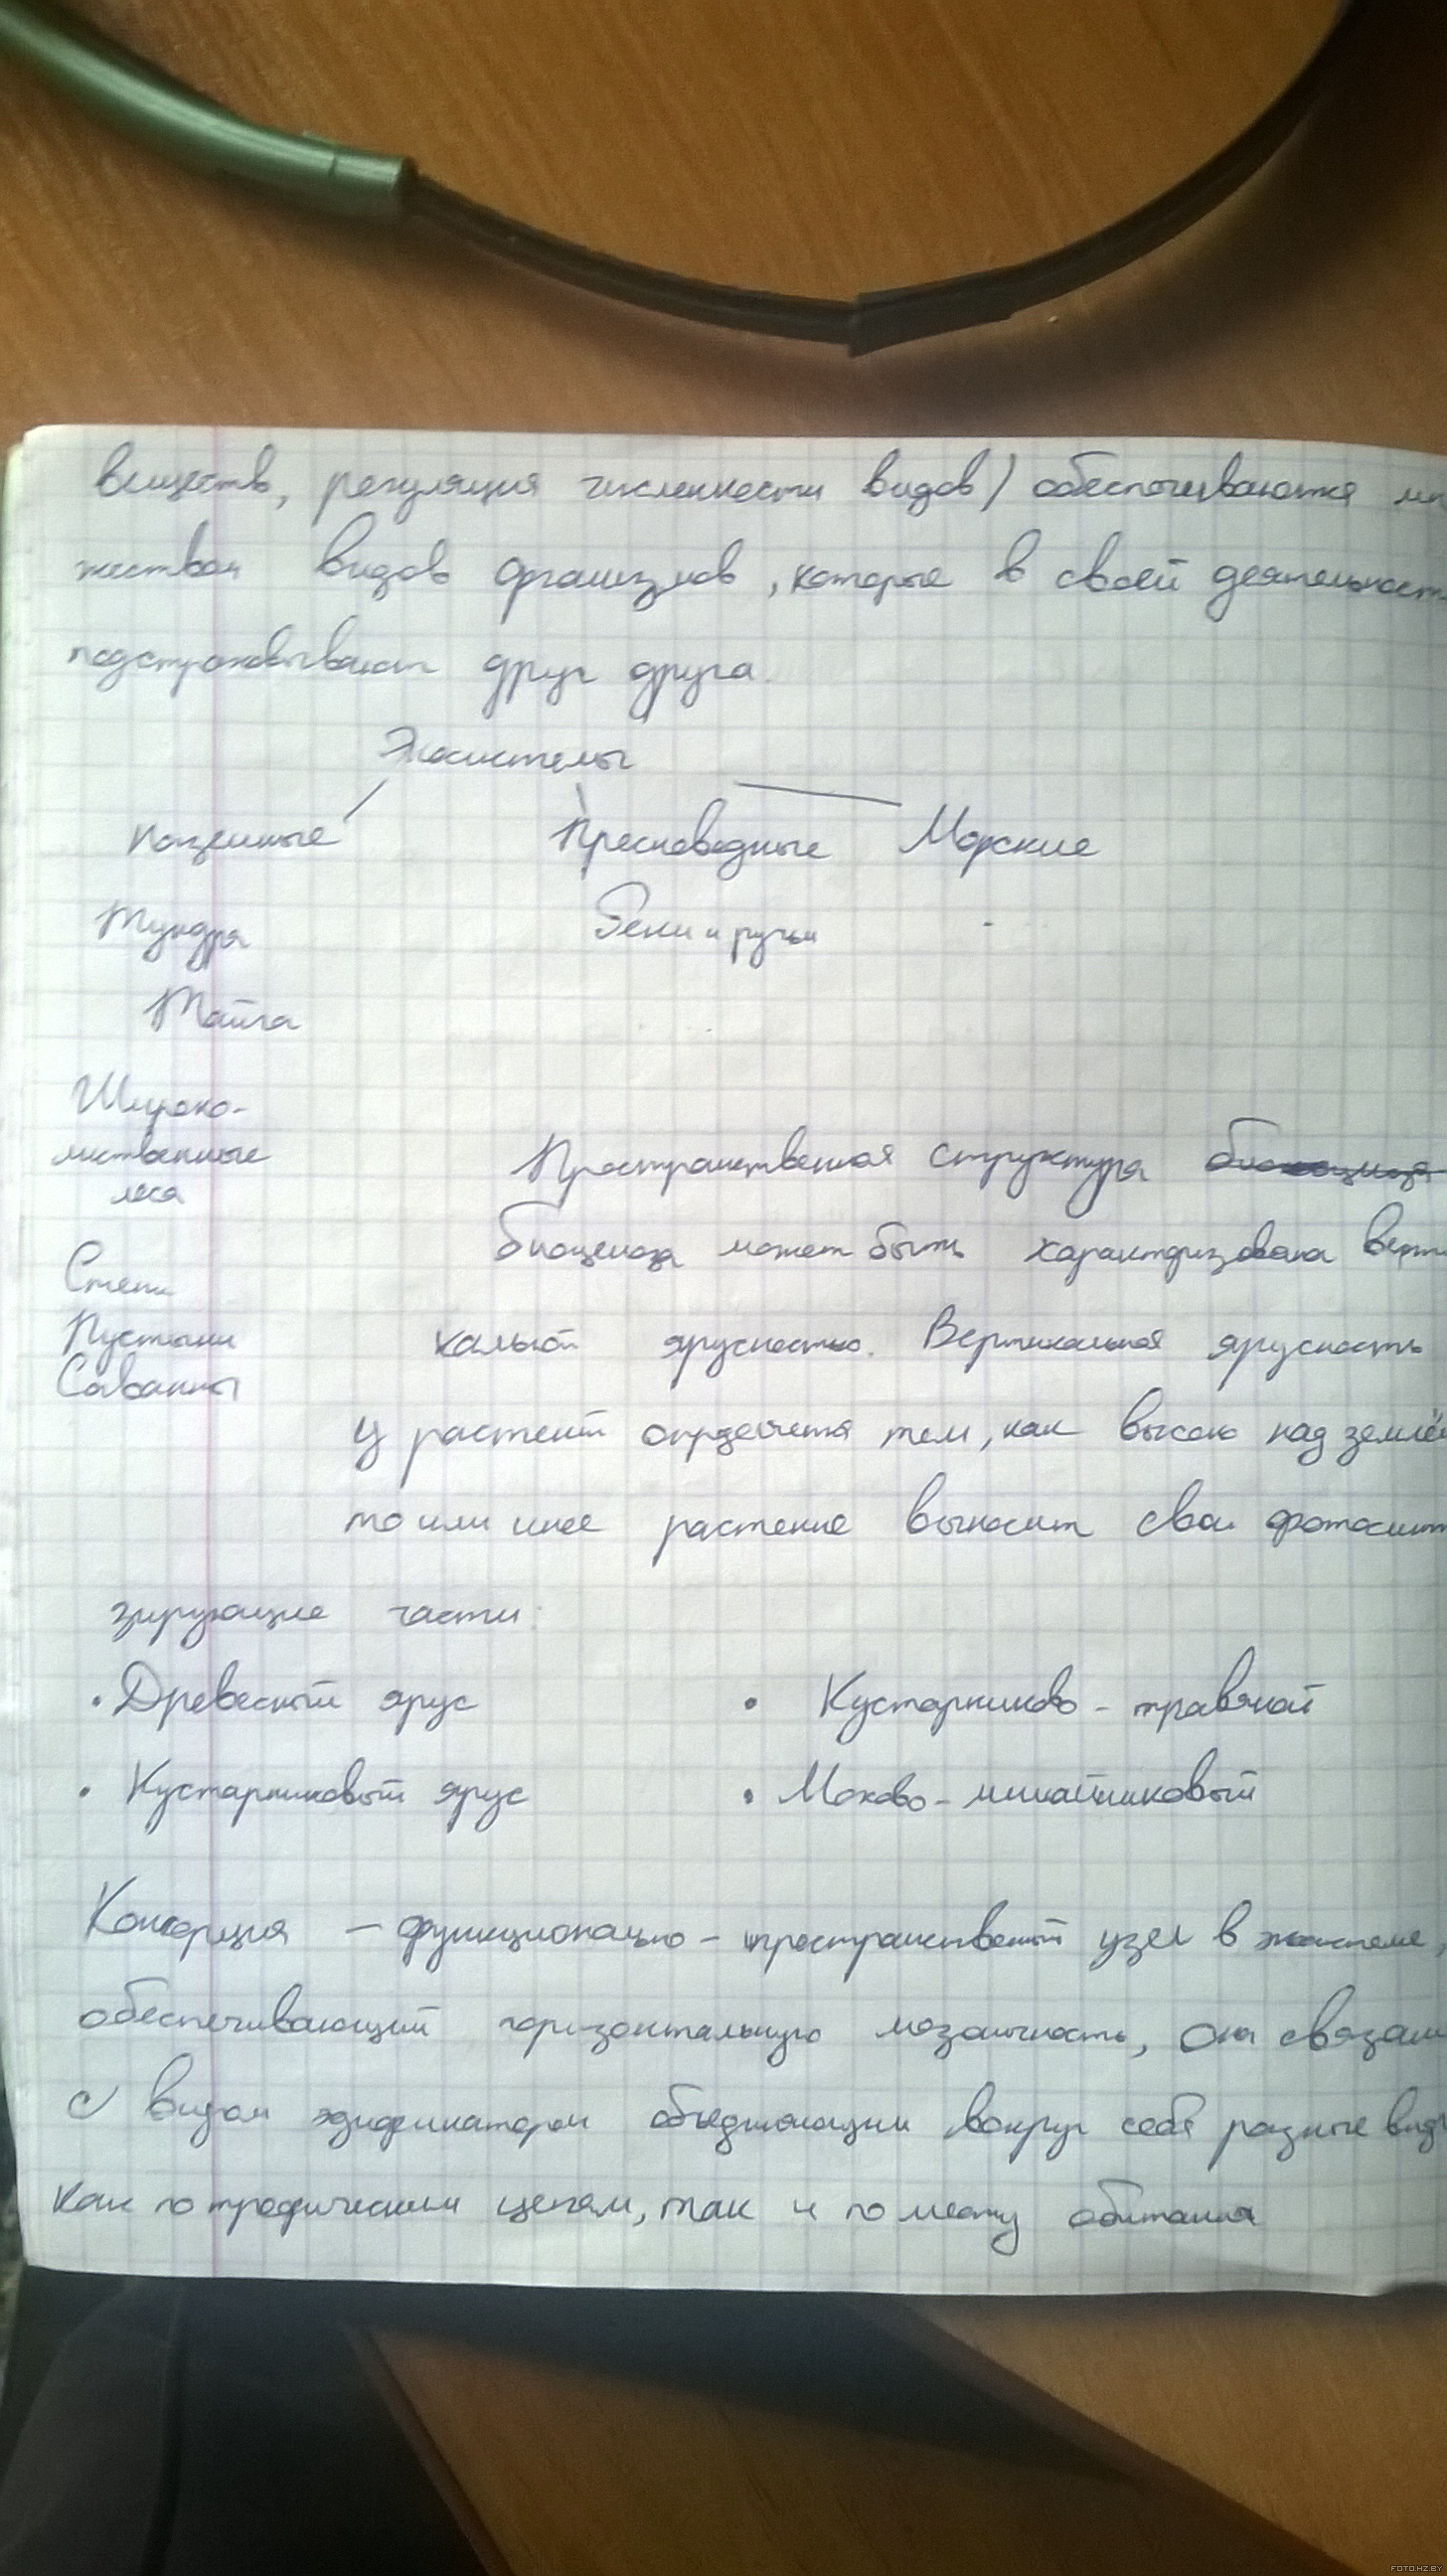 веществ, регуляция численности видов) обеспечиваются мн
жеством видов организмов, которые в своей деятельност
подстраховывают друг друга.
Экосистемы
Наземные Пресноводные Морские
Тундра Реки и ручьи -
Тайга
Широко-
лиственные
леса
Степи
Пустыни
Саванны
Пространственная структура
биоценоза может быть характеризована верти
кальной ярусностью. Вертикальная ярусность
у растений определяется тем, как высоко над землёй
то или иное растение выносит свои фотосинт
зирующие части:
• Древесный ярус • Кустарниково - травяной
• Кустарниковый ярус • Мохово - лишайниковый
Консорция — функционально - пространственный узел в экосистеме,
обеспечивающий горизонтальную мозаичность, она связан
с видом эдификатором объединяющим вокруг себя разные виды
как по трофическим цепям, так и по месту обитания
FOTO.HZ.BY